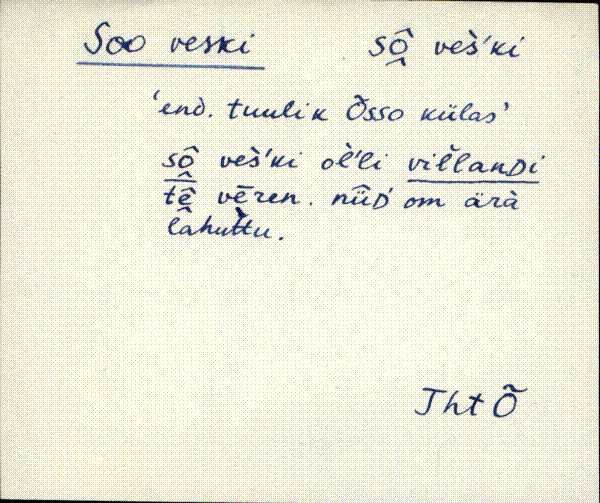 Soo veski sô̭ ves̀'ki
'end. tuulik Õsso külas'
sô̭ ves̀'ki ol̀'li vil̆landi
tḙ̂ vēren. nüid om ärà
lahut̀tu.
Tht Õ